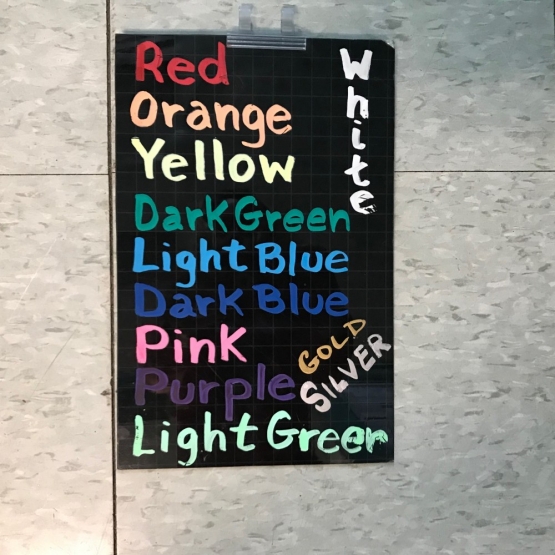 Red
Orange
Yellow
Dark Green
Light Blue
Dark Blue
Pink
Purple
Light Green
White
GOLD
SILVER